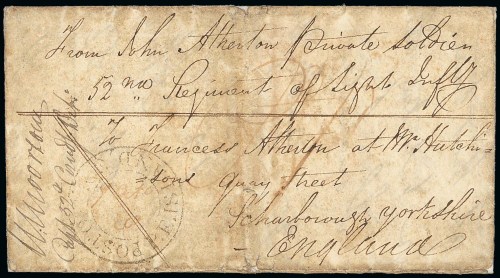 From John Atherton private soldier
52nd Regiment of Light Inf'y
To Francess Atherton at Mr Hutchi-
=sons quay street
Scharborough yorkshire
England
W. Moorsom
Capt 52d
POST